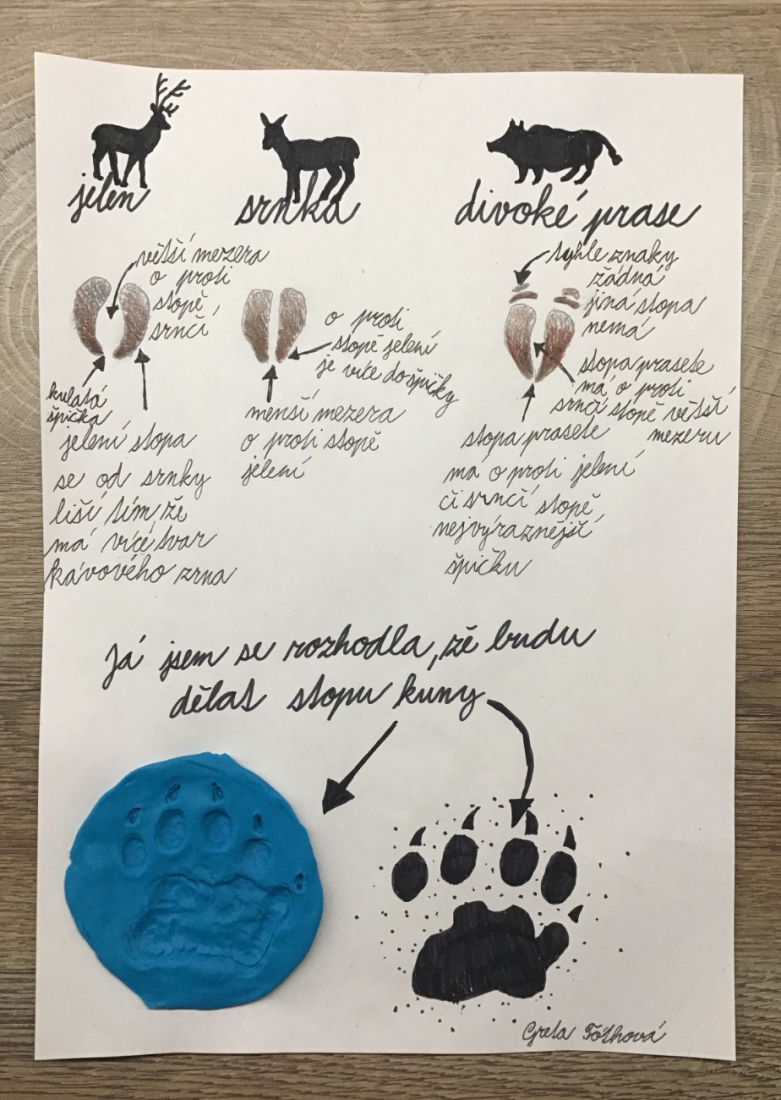 jelen
srnka
divoké prase
větší mezera
o proti
stopě
srnčí
kulatá
špička
jelení stopa
se od srnky
liší tím že
má více tvar
kávového zrna
o proti
stopě jelení
je více do špičky
menší mezera
o proti stopě
jelení
tyhle znaky
žádná
jiná stopa
nemá
stopa prasete
má o proti
srnčí stopě větší
mezeru
stopa prasete
má o proti jelení
či srnčí stopě
nejvýraznější
špičku
Já jsem se rozhodla, že budu
dělat stopu kuny
Greta Tóthová